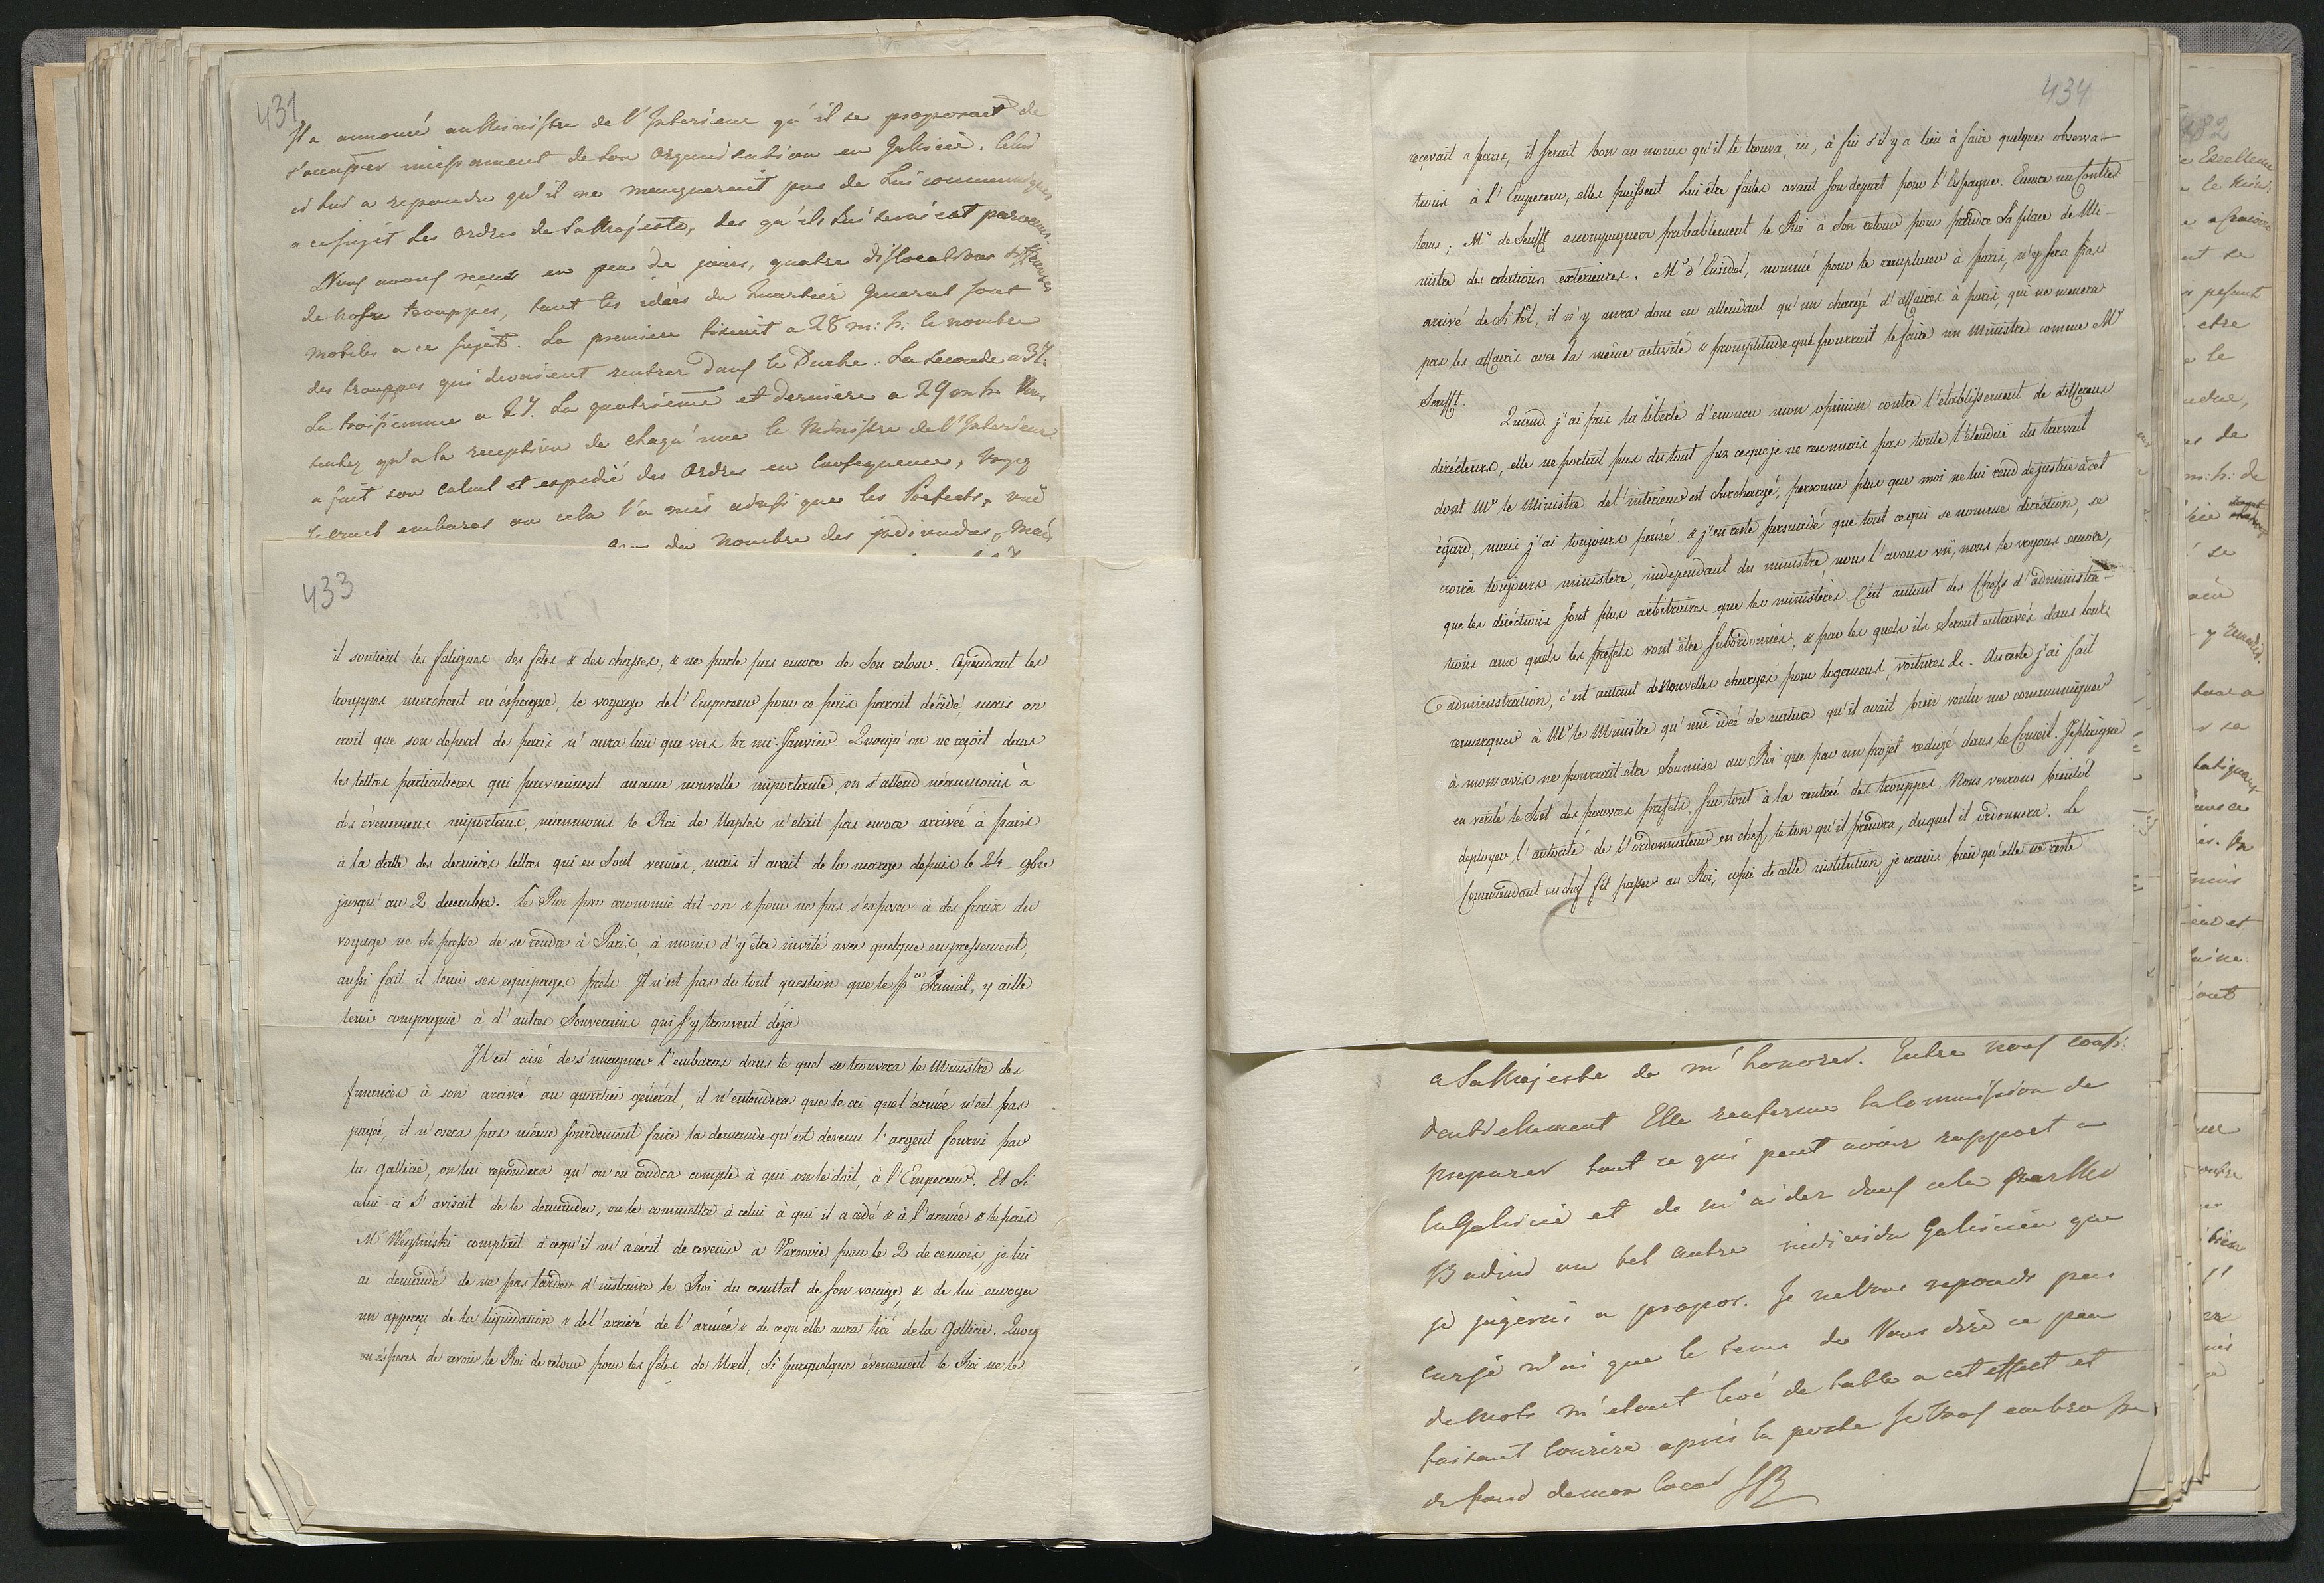 431
Il a annoncé au Ministre de l'Interieur qu'il se proposait de
s'occuper incessament de son organisation en Galicie. Celui
ci lui a repondu qu'il ne manquerait pas de lui communiquer
a ce sujet les ordres de Sa Majesté, des qu'ils lui seraient parvenus.
Nous avons reçus en peu de jours, quatre dislocations differentes
de nos trouppes, tant les idées du Quartier General sont
mobiles a ce sujet. La premiere faisait a 28 m: h: le nombre
des trouppes qui devaient rentrer dans le Duché. La seconde a 37.
La troisiemme a 27. La quatriéme et derniere a 29 m h. Vous
sentez qu'a la reception de chaqu'une le Ministre de l'Interieur
a fait son calcul et expedié des Ordres en consequence, Voyez
le cruel embaras ou cela l'a mis ainsi que les Prefects,
du nombre des individus, mais
433
il soutient les fatigues des fêtes & des chasses, & ne parle pas encore de son retour. Cependant les
trouppes marchent en éspagne, le voyage de l'Empereur pour ce païs parrait décidé, mais on
croit que son depart de paris n'aura lieu que vers la mi-Janvier. Quoiqu'on ne reçoit dans
les lettres particulieres qui parviennent aucune nouvelle importante, on s'attend néanmoins à
des évenemens importans, néanmoins le Roi de Naples n'etait pas encore arrivée à paris
à la datte des dernières lettres qui en sont venues, mais il avait de la marge depuis le 24 9bre
jusqu'au 2 decembre. Le Roi par œconomie dit-on & pour ne pas s'exposer à des fraix du
voyage ne se presse de se rendre à Paris, à moins d'y être invité avec quelque empressement,
aussi fait-il tenir ses equipages prêts. Il n'est pas du tout question que le pce Primat, y aille
tenir compagnie à d'autres Souverains qui s'y trouvent déja
Il est aisé de s'imaginer l'embaras dans le quel se trouvera le Ministre des
finances à son arrivée au quartier général, il n'entendera que le cri que l'armée n'est pas
payée, il n'osera pas même sourdement faire la demande qu'est devenu l'argent fourni par
la gallicie, on lui repondera qu'on en rendra compte à qui on le doit, à l'Empereur. Et si
celui-ci s'avisait de le demander, on le commettra à celui à qui il a cedé & à l'armée & le païs
M Węgliński comptait à ce qu'il m'a écrit de revenir à Varsovie pour le 2 de ce mois, je lui
ai demandé de ne pas tarder d'instruire le Roi du resultat de son voiage, & de lui envoyer
un apperçu de la liquidation & de l'arrieré de l'armée & de ce qu'elle aura tiré de la Gallicie. Quoiq
on éspere de revoir le Roi de retour pour les fêtes de Noël, si par quelque évenement le Roi ne le
434
reçevait a paris, il serait bon au moins qu'il le trouva ici, à fin s'il y a lieu à faire quelques observa-
tions à l'Empereur, elles puissent lui être faites avant son depart pour l'Espagne. Encore un Contre
tems; Mr de Senfft accompagnera probablement le Roi à son retour pour prendre sa place de Mi-
nistre des relations exterieures. Mr d'Einsidel, nommé pour le remplacer à paris, n'y sera pas
arrivé de si tôt, il n'y aura donc en attendant qu'un chargé d'affaires à paris, qui ne menera
pas les affaires avec la même activité & promptitude que pourrait le faire un Ministre comme Mr
Senfft.
Quand j'ai pris la liberté d'enoncer mon opinion contre l'établissement de differens
directeurs, elle ne portait pas du tout sur ce que je ne reconnais pas toute l'étendue du travail
dont Mr le Ministre de l'interieur est surchargé, personne plus que moi ne lui rend de justice à cet
égard, mais j'ai toujours pensé & j'en reste persuadé que tout ce qui se nomme diréction, se
croira toujours ministere, independant du ministre nous l'avons vû, nous le voyons encore,
que les diréctions sont plus arbitraires que les ministeres. C'est autant des Chefs d'administra-
tions aux quels les prefets vont être subordonnés, & par les quels ils seront entravés dans leurs
administration, c'est autant de nouvelles charges pour logemens, voitures &c. Au reste j'ai fait
remarquer à Mr le Ministre qu'une idée de nature qu'il avait bien voulu me communiquer
à mon avis ne pourrait être soumise au Roi que par un projet redigé dans le Conseil. Je plaigne
en verité le sort des pauvres prefets, sur tout à la rentrée des trouppes. Nous verrons bientôt
deployer l'autorité de l'ordonnateur en chef, le ton qu'il prendra, duquel il ordonnera. Le
Commendant en chef fit passer au Roi, copie de cette institution, je crains bien qu'elle ne reste
a Sa Majesté de m'honorer. Entre nous confi-
dentiellement Elle renferme la Commission de
preparer tout ce qui peut avoir rapport a
la Galicie et de m'aider dans cela par Mr
Badini ou tel autre individu Galicien que
je jugerai a propos. Je ne Vous reponds pas
car je n'ai que le tems de Vous dire ce peu
de mots m'etant levé de table a cet effect et
faisant courire après la poste Je Vous embrasse
du fond de mon Coeur
482
Excellence
m: h: de